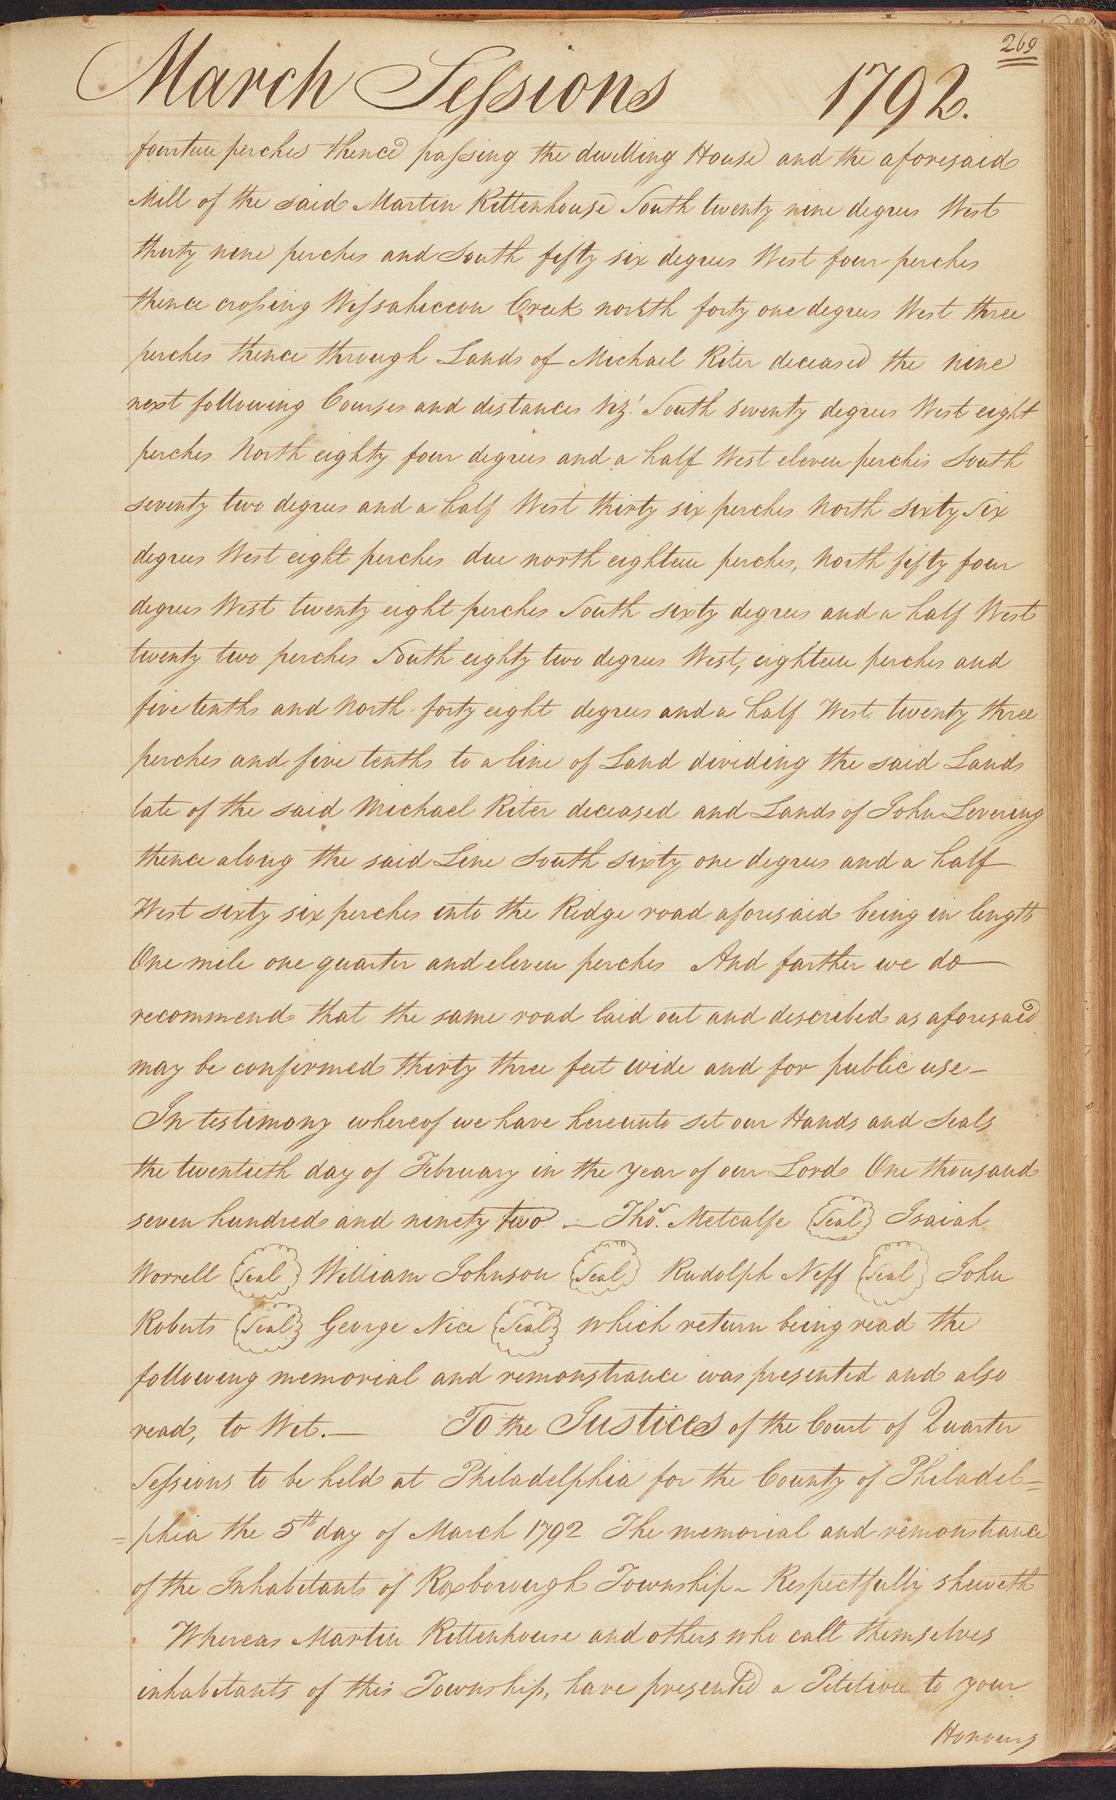 269
March Sessions 1792.
fourteen perches thence passing the dwelling House and the aforesaid
Mill of the said Martin Rittenhouse South twenty nine degrees West
thirty nine perches and South fifty six degrees West four perches
thence crossing Wissahiccon Creek north forty one degrees West three
perches thence through Lands of Michael Riter deceased the nine
next following Courses and distances Viz! South seventy degrees West eight
perches North eighty four degrees and a half West eleven perches South
seventy two degrees and a half West thirty six perches North sixty Six
degrees West eight perches due north eighteen perches, North fifty four
degrees West twenty eight perches South sixty degrees and a half West
twenty two perches South eighty two degrees West, eighteen perches and
five tenths and North forty eight degrees and a half West twenty three
perches and five tenths to a line of Land dividing the said Lands
late of the said Michael Riter deceased and Lands of John Levering
thence along the said Line South sixty one degrees and a half
West sixty six perches into the Ridge road aforesaid being in length
One mile one quarter and eleven perches And farther we do—
recommend that the same road laid out and described as aforesaid
may be confirmed thirty three feet wide and for public use—
In testimony whereof we have hereunto set our Hands and Seals
the twentieth day of February in the year of our Lord One thousand
seven hundred and ninety two — Thos. Metcalfe (Seal) Isaiah
Worrell (Seal) William Johnson (Seal) Rudolph Neff (Seal) John
Roberts (Seal) George Nice (Seal) which return being read the
following memorial and remonstrance was presented and also
read, to Wit.— To the Justices of the Court of Quarter
Sessions to be held at Philadelphia for the County of Philadel=
=phia the 5th day of March 1792 The memorial and remonstrance
of the Inhabitants of Roxborough Township — Respectfully sheweth
Whereas Martin Rittenhouse and others who call themselves
inhabitants of this Township, have presented a Petition to your
Honours